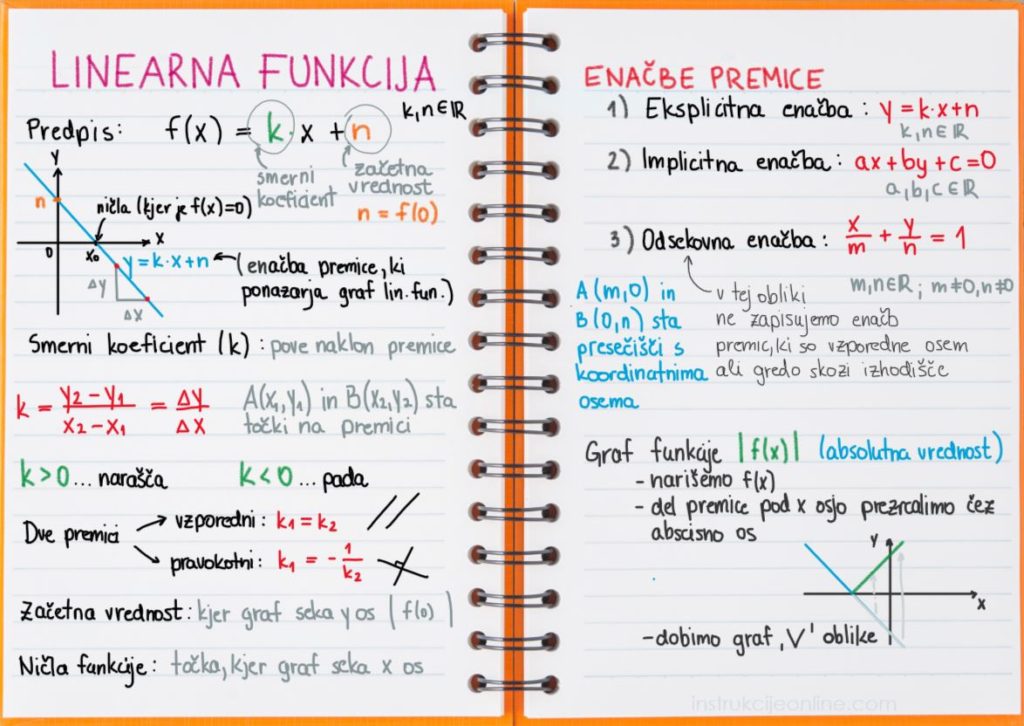 LINEARNA FUNKCIJA
Predpis: f(x) = k·x + n k,n∈ℝ
smerni koeficient
začetna vrednost
n = f(0)
y
n
ničla (kjer je f(x)=0)
0
x₀
x
y = k·x+n
(enačba premice, ki
ponazarja graf lin. fun.)
Δy
Δx
Smerni koeficient (k): pove naklon premice
k = y₂-y₁ / x₂-x₁ = Δy / Δx
A(x₁,y₁) in B(x₂,y₂) sta
točki na premici
k>0 ... narašča k<0 ... pada
Dve premici
vzporedni: k₁ = k₂
pravokotni: k₁ = - 1/k₂
Začetna vrednost: kjer graf seka y os | f(0) |
Ničla funkcije: točka, kjer graf seka x os
ENAČBE PREMICE
1) Eksplicitna enačba: y = k·x+n
k,n∈ℝ
2) Implicitna enačba: ax+by+c=0
a,b,c∈ℝ
3) Odsekovna enačba: x/m + y/n = 1
m,n∈ℝ; m≠0, n≠0
A(m,0) in
B(0,n) sta
presečišči s
koordinatnima
osema
v tej obliki
ne zapisujemo enačb
premic, ki so vzporedne osem
ali gredo skozi izhodišče
Graf funkcije |f(x)| (absolutna vrednost)
- narišemo f(x)
- del premice pod x osjo prezrcalimo čez
abscisno os
y
x
- dobimo graf ,V' oblike
instrukcijeonline.com